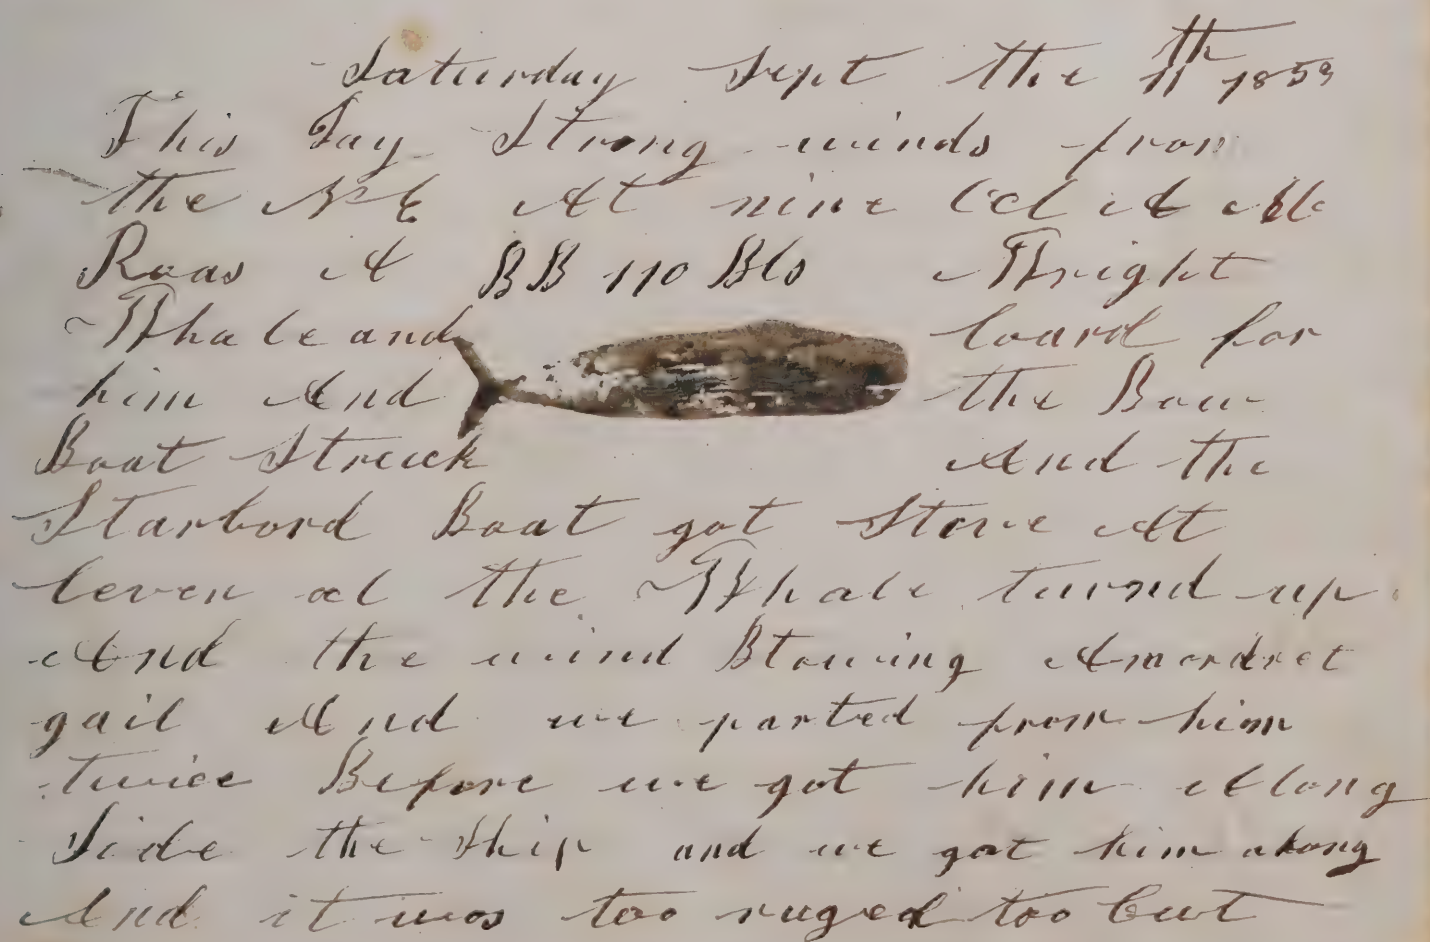 Saturday Sept the 11th 1858
This Day Strong winds from
the NE At nine Ocl A M
Raas A BB 110 Bls Wright
Whale and loard for
him And the Bow
Boat Struck And the
Starbord Boat got Stove At
leven ocl the Whale turnd up
And the wind Blowing Amordret
gail And we parted from him
twice Before we got him Along
Side the Ship and we got him along
And it was too ruged too Cut